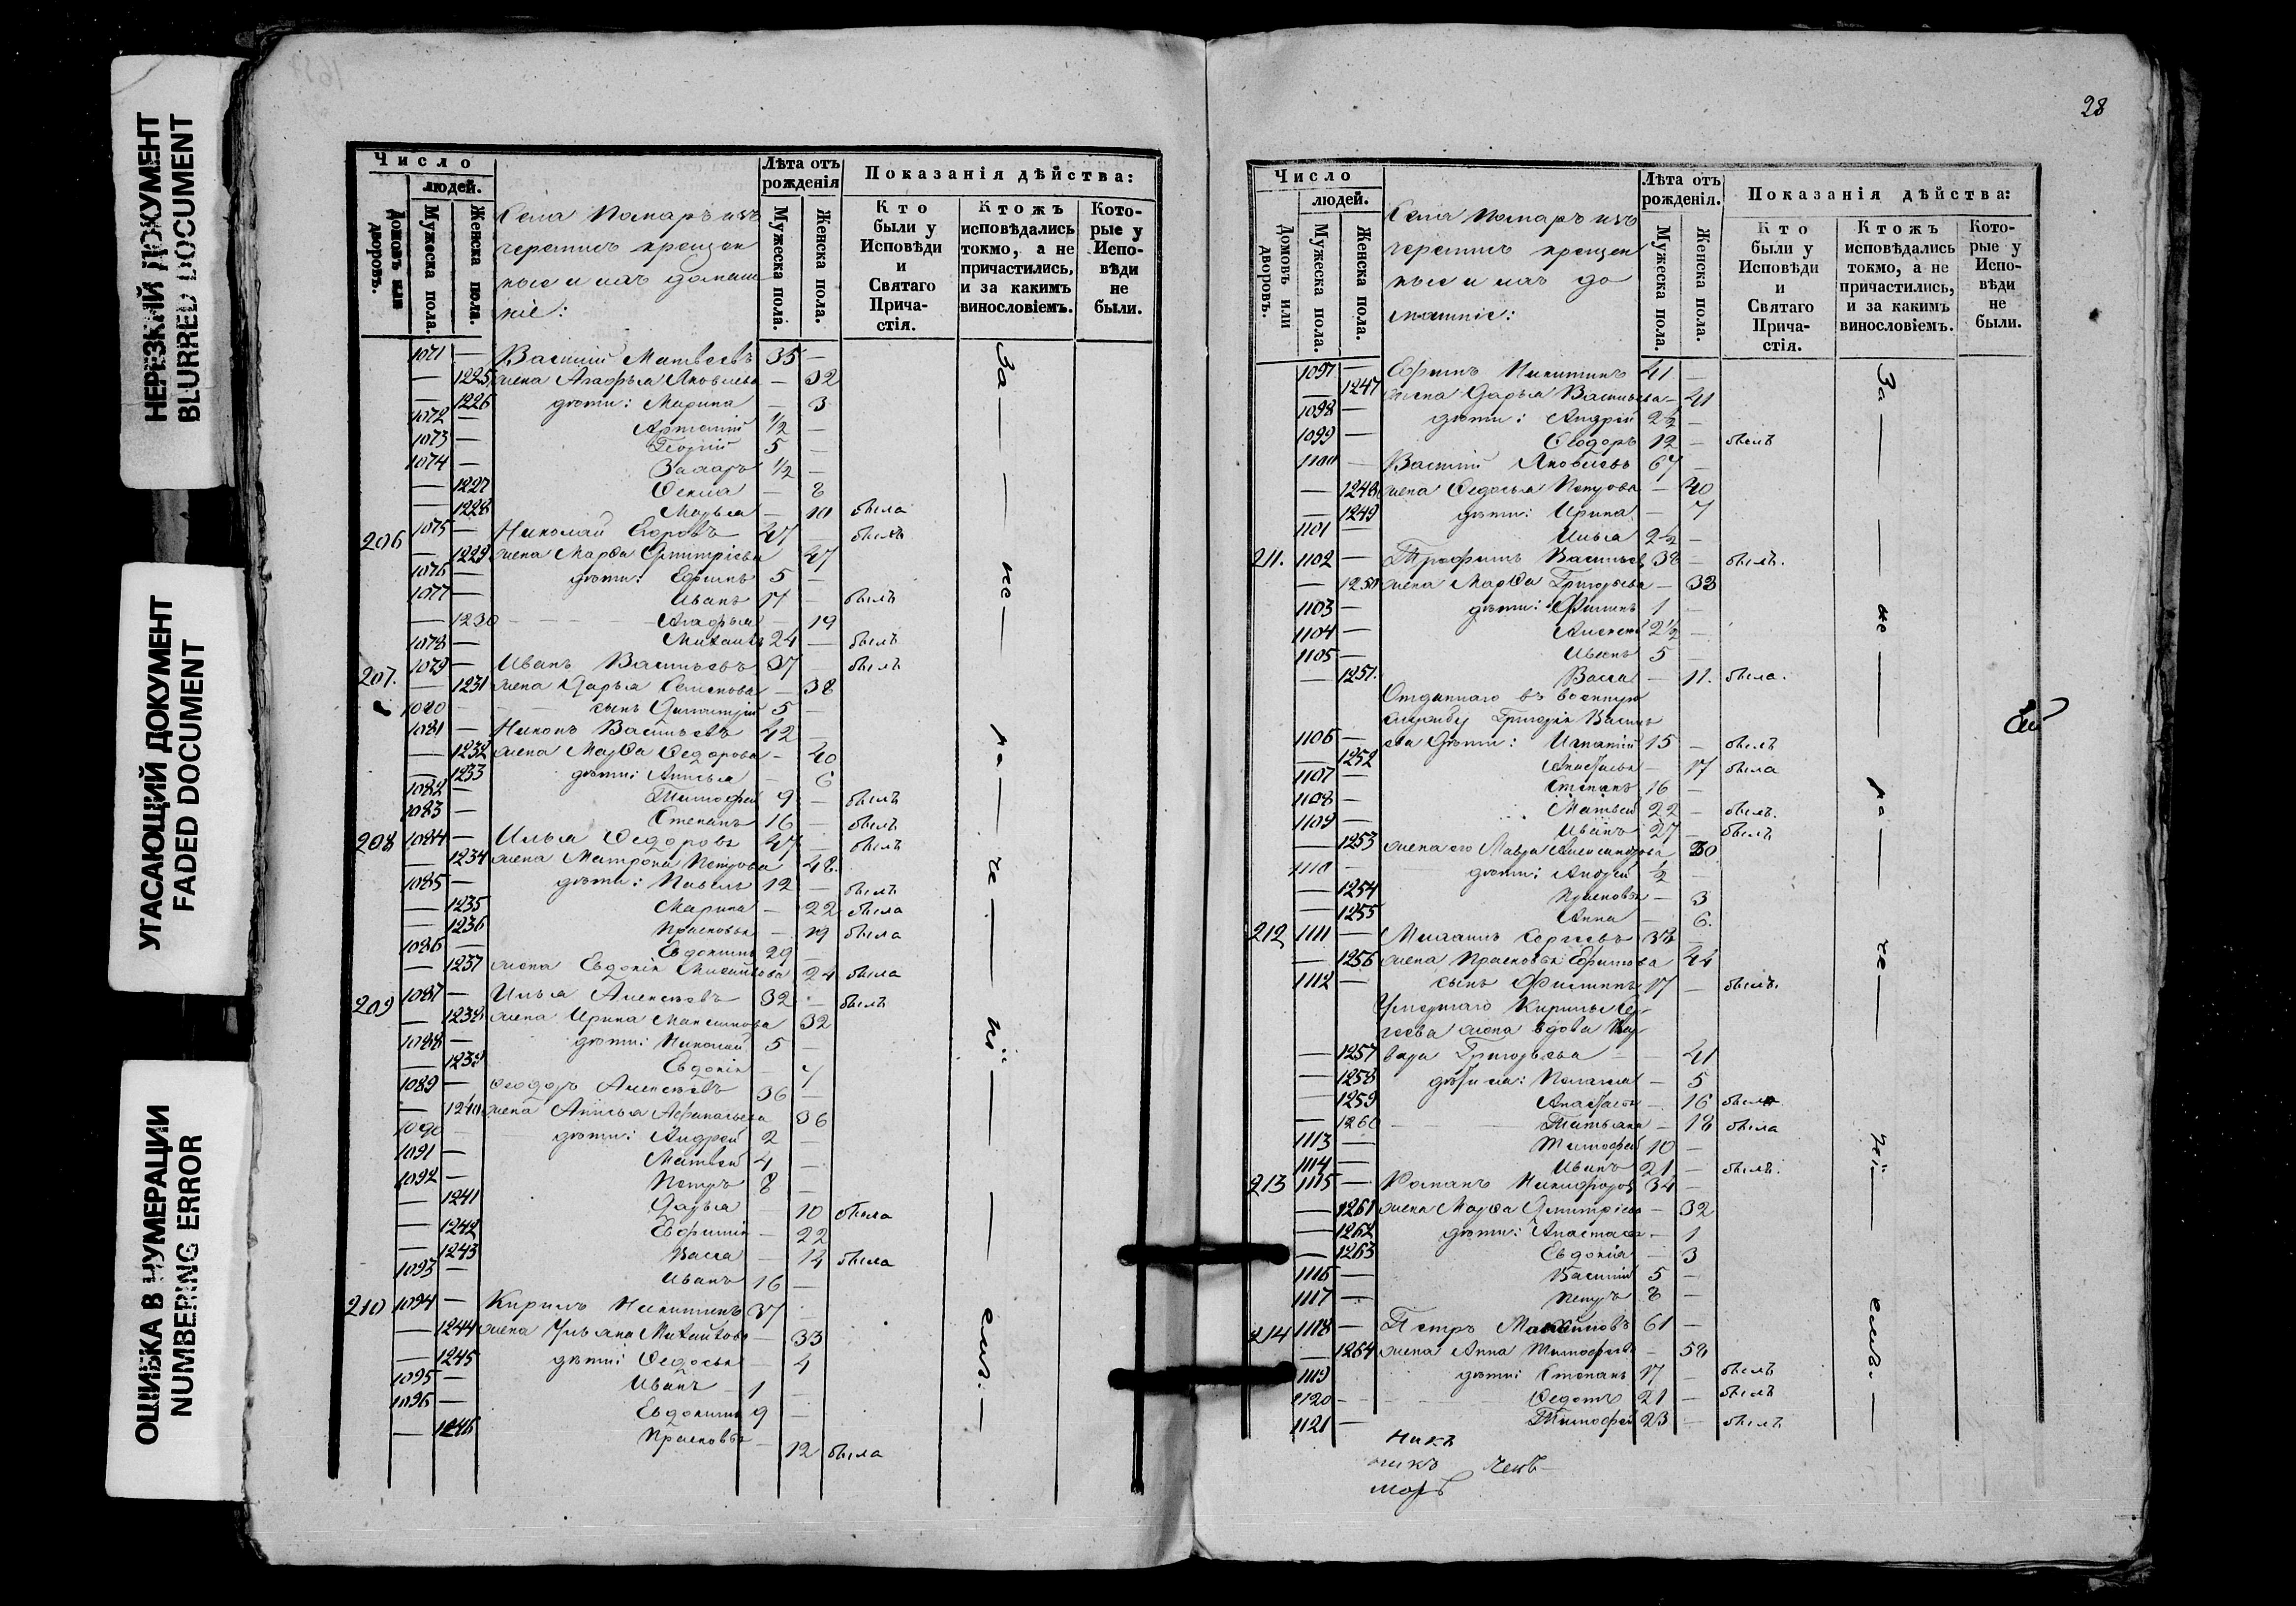 НЕРЕЗКИЙ ДОКУМЕНТ
BLURRED DOCUMENT
УГАСАЮЩИЙ ДОКУМЕНТ
FADED DOCUMENT
ОШИБКА В НУМЕРАЦИИ
NUMBERING ERROR
Число
людей.
Домовъ или дворовъ.
Мужеска пола.
Женска пола.
Села Помаръ изъ
черемисъ крещен
ные и ихъ домаш
ніе:
Лѣта отъ рожденія
Мужеска пола.
Женска пола.
Показанія дѣйства:
Кто были у Исповѣди и Святаго Причастія.
Ктожъ исповѣдались токмо, а не причастились, и за какимъ винословіемъ.
Которые у Исповѣди не были.
За — не — ра — че — ні — емъ. —
1071 — Василий Матвеевъ 35 —
— 1225 жена Агафья Яковлева — 32
— 1226 дѣти: Марина — 3
1072 — 1/2 —
1073 — Георгій 5 —
1074 — Захаръ 1/2 —
— 1227 Фекла — 8
— 1228 Марья — 10 была
206 1075 — Николай Егоровъ 47 — былъ
— 1229 жена Марѳа Дмитріева 47
1076 — дѣти: Ефимъ 5 —
1077 — Иванъ 17 — былъ
— 1230 Агафья — 19
1078 — Михаилъ 24 — былъ
207. 1079 — Иванъ Васильевъ 37 — былъ
— 1231 жена Дарья Семенова — 38
1080 — сынъ Димитрій 5 —
1081 — Никонъ Васильевъ 42 —
— 1232 жена Марѳа Ѳедорова — 40
— 1233 дѣти: Анисья — 6
1082 — Тимофей 9 — былъ
1083 — Степанъ 16 — былъ
208 1084 — Илья Ѳедоровъ 47 — былъ
— 1234 жена Матрона Петрова 48.
1085 — дѣти: Павелъ 12 — былъ
— 1235 Марина — 22 была
— 1236 Прасковья — 19 была
1086 — Евдокимъ 29 —
— 1237 жена Евдокія Михайлова 24 была
209 1087 — Илья Алексѣевъ 32 — былъ
— 1238 жена Ирина Максимова 32
1088 — дѣти: Николай 5 —
— 1239 Евдокія — 7
1089 — Ѳеодоръ Алексѣевъ 36 —
— 1240 жена Анисья Афанасьева 36
1090 — дѣти: Андрей 2 —
1091 — Матвей 4 —
1092 — Петръ 8 —
— 1241 Дарья — 10 была
— 1242 Ефимія — 22
— 1243 Васса — 14 была
1093 — Иванъ 16 —
210 1094 — Кирилъ Никитинъ 37
— 1244 жена Ульяна Михайлова — 33
— 1245 дѣти: Ѳедосья — 4
1095 — Иванъ 1 —
1096 — Евдокимъ 9 —
— 1246 Прасковья — 12 была
28
Число
людей.
Домовъ или дворовъ.
Мужеска пола.
Женска пола.
Села Помаръ изъ
черемисъ крещен
ные и ихъ до
машніе:
Лѣта отъ рожденія.
Мужеска пола.
Женска пола.
Показанія дѣйства:
Кто были у Исповѣди и Святаго Причастія.
Ктожъ исповѣдались токмо, а не причастились, и за какимъ винословіемъ.
Которые у Исповѣди не были.
За — не — ра — че — ні — емъ. —
1097 — Ефимъ Никитинъ 41 —
— 1247 жена Дарья Васильева — 41
1098 — дѣти: Андрей 2 1/2 —
1099 — Ѳеодоръ 12 — былъ
1100 — Василій Яковлевъ 67 —
— 1248 жена Ѳедосья Петрова — 40
— 1249 дѣти: Ирина — 7
1101 — Илья 2 1/2 —
211. 1102 — Трофимъ Васильевъ 38 — былъ.
— 1250 жена Марѳа Григорьева — 33
1103 — дѣти: Филипъ 1 —
1104 — Алексѣй 2 1/2 —
1105 — Иванъ 5 —
— 1251. Васса — 11. была.
Отданнаго въ военную
службу Григорія Василь
1106 — ева дѣти: Игнатій 15 — былъ
— 1252 Анастасья — 17 была
1107 — Степанъ 16 —
1108 — Матвей 22 — былъ.
1109 — Иванъ 27 — былъ
— 1253 жена его Мавра Александрова 30
1110 — дѣти: Андрей 1/2 —
— 1254 Прасковья — 3
— 1255 Анна — 6.
212 1111 — Михаилъ Сергеевъ —
— 1256 жена Прасковья Ефимова 44
1112 — сынъ Филиппъ 17 — былъ.
Умершаго Кирилы Сер-
геева жена вдова Вар-
— 1257 вара Григорьева — 41
— 1258 дѣти ея: Пелагея — 5
— 1259 Анастасія — 16 была
— 1260 Татьяна — 18 была
1113 — Тимофей 10 —
1114 — Иванъ 21 — былъ.
213 1115 — Романъ Никифоровъ 34 —
— 1261 жена Марѳа Димитріева — 32
— 1262 дѣти: Анастасія — 1
— 1263 Евдокія — 3
1116 — Василій 5 —
1117 — Петръ 8 —
214 1118 — Петръ Максимовъ 61 —
— 1264 жена Анна Тимофеева — 58
1119 дѣти: Степанъ 17 — былъ
1120 — Ѳедотъ 21 — былъ
1121 — Тимофей 23 — былъ